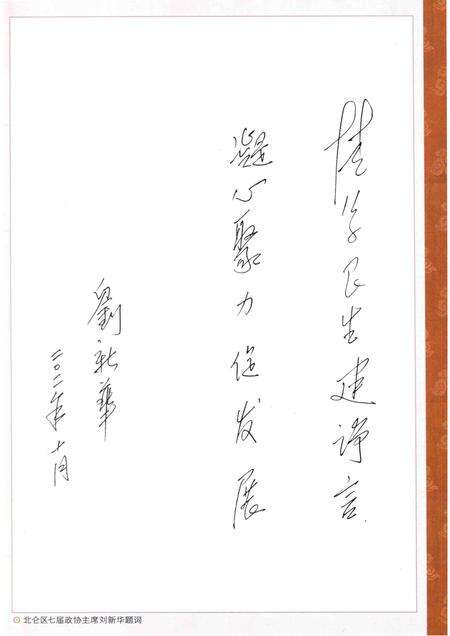 情系民生建诤言
凝心聚力促发展
劉新華
二〇一一年十月
北仑区七届政协主席刘新华题词